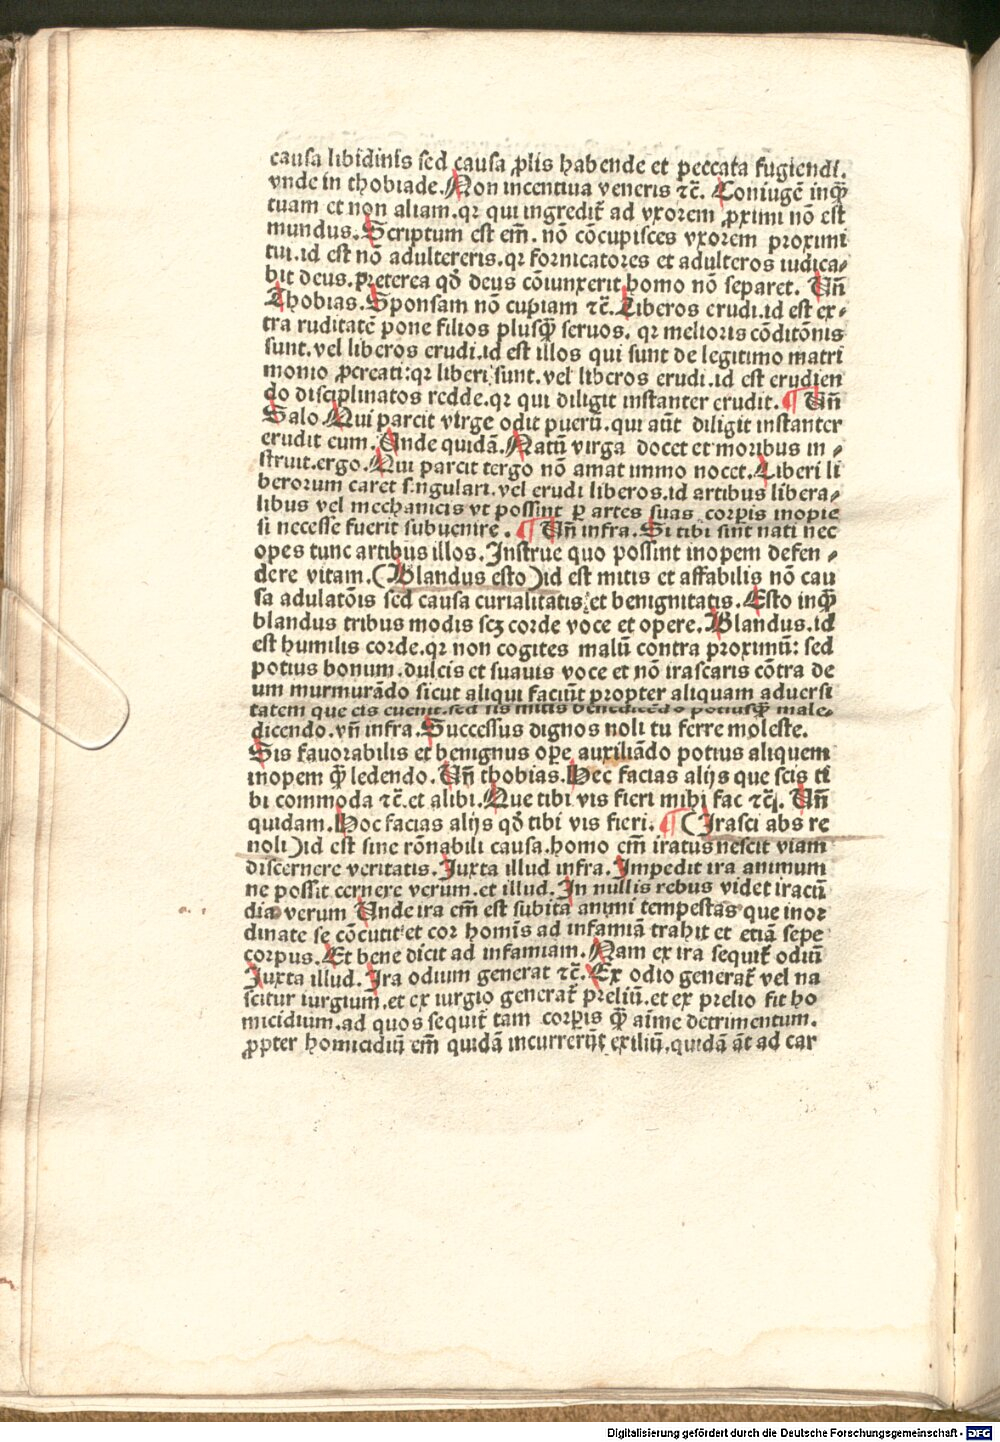 causa libidinis sed causa ꝓlis habende et peccata fugiendi.
vnde in thobiade. Non incentiua veneris ⁊c̄. Coniugē inqͥ
tuam et non aliam. qꝛ qui ingredit᷑ ad vxorem ꝓximi nō est
mundus. Scriptum est em̄. nō cōcupisces vxorem proximi
tui. id est nō adultereris. qꝛ fornicatores et adulteros iudica⸗
bit deus. preterea qd̄ deus cōiunxerit homo nō separet. Vn̄
Thobias. Sponsam nō cupiam ⁊c̄. Liberos erudi. id est ex⸗
tra ruditatē pone filios plusqͣ̄ seruos. qꝛ melioris cōditōnis
sunt. vel liberos erudi. id est illos qui sunt de legitimo matri
monio ꝓcreati: qꝛ liberi sunt. vel liberos erudi. id est erudien
do disciplinatos redde. qꝛ qui diligit instanter erudit. ¶ Vn̄
Salo. Qui parcit virge odit puerū. qui aūt diligit instanter
erudit eum. Unde quidā. Natū virga docet et moribus in⸗
struit. ergo. Qui parcit tergo nō amat immo nocet. Liberi li
berorum caret singulari. vel erudi liberos. id artibus libera⸗
libus vel mechanicis vt possint ꝑ artes suas corꝑis inopie
si necesse fuerit subuenire. ¶ Vn̄ infra. Si tibi sint nati nec
opes tunc artibus illos. Instrue quo possint inopem defen⸗
dere vitam. (Blandus esto) id est mitis et affabilis nō cau
sa adulatōis sed causa curialitatis et benignitatis. Esto inqͥ
blandus tribus modis scꝫ corde voce et opere. Blandus. id
est humilis corde. qꝛ non cogites malū contra proximū: sed
potius bonum. dulcis et suauis voce et nō irascaris cōtra de
um murmurādo sicut aliqui faciūt propter aliquam aduersi
tatem que eis euenit. sed sis mitis benedicēdo potiusqͣ̄ male⸗
dicendo. vn̄ infra. Successus dignos noli tu ferre moleste.
Sis fauorabilis et benignus oꝑe auxiliādo potius aliquem
inopem qͣ̄ ledendo. Vn̄ thobias. Hec facias alijs que scis ti
bi commoda ⁊c̄. et alibi. Que tibi vis fieri mihi fac ⁊c̄. Vn̄
quidam. Hoc facias alijs qd̄ tibi vis fieri. ¶ (Irasci abs re
noli) id est sine rōnabili causa. homo em̄ iratus nescit viam
discernere veritatis. Juxta illud infra. Impedit ira animum
ne possit cernere verum. et illud. In nullis rebus videt iracū
dia verum Unde ira em̄ est subita animi tempestas que inoꝛ
dinate se cōcutit et cor homīs ad infamiā trahit et etiā sepe
corpus. Et bene dicit ad infamiam. Nam ex ira sequit᷑ odiū
Juxta illud. Ira odium generat ⁊c̄. Ex odio generat᷑ vel na
scitur iurgium. et ex iurgio generat᷑ preliū. et ex prelio fit ho
micidium. ad quos sequit᷑ tam corꝑis qͣ̄ aīme detrimentum.
ꝓpter homicidiū em̄ quidā incurrerūt exiliū. quidā āt ad car
Digitalisierung gefördert durch die Deutsche Forschungsgemeinschaft - DFG